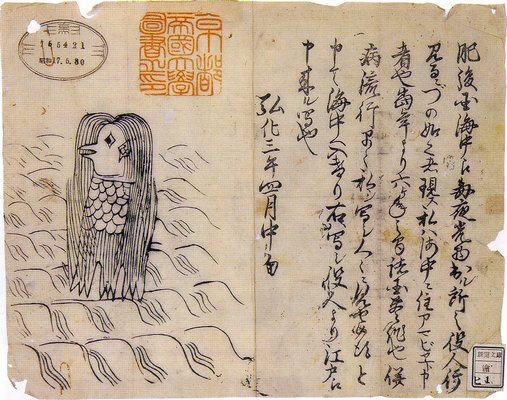 肥後国海中え毎夜光物出ル所之役人行
見るニづの如く者現ス私ハ海中ニ住アマビヱト申
者也當年より六ヶ年之間諸国豊作也併
病流行早々私ヲ写シ人々ニ見セ候得と
申て海中へ入けり右写シ役人より江戸え
申来ル写也
弘化三年四月中旬
京都
帝國大學
圖書之印
165421
昭和17.5.30
新聞文庫